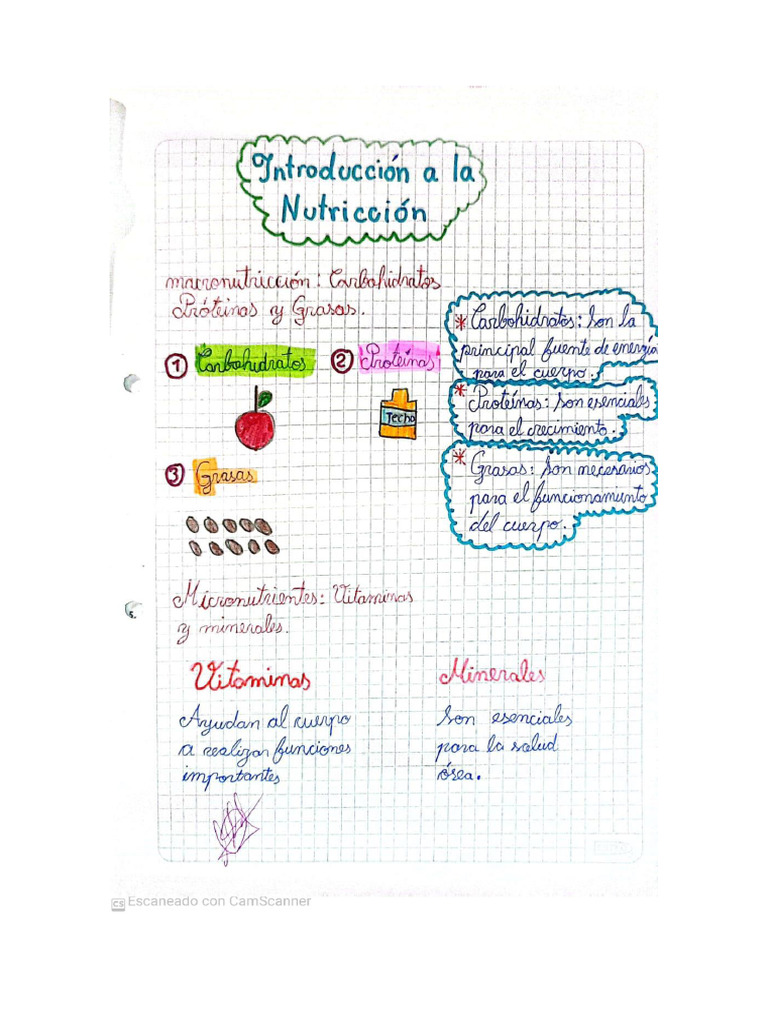 Introducción a la
Nutricción
macronutricción: Carbohidratos
Próteinas y Grasas.
1 Carbohidratos
2 Proteínas
Techo
3 Grasas
* Carbohidratos: Son la
principal fuente de energía
para el cuerpo.
* Proteínas: Son esenciales
para el crecimiento.
* Grasas: Son necesarios
para el funcionamiento
del cuerpo.
Micronutrientes: Vitaminas
y minerales.
Vitaminas
Ayudan al cuerpo
a realizar funciones
importantes
Minerales
Son esenciales
para la salud
ósea.
CS Escaneado con CamScanner